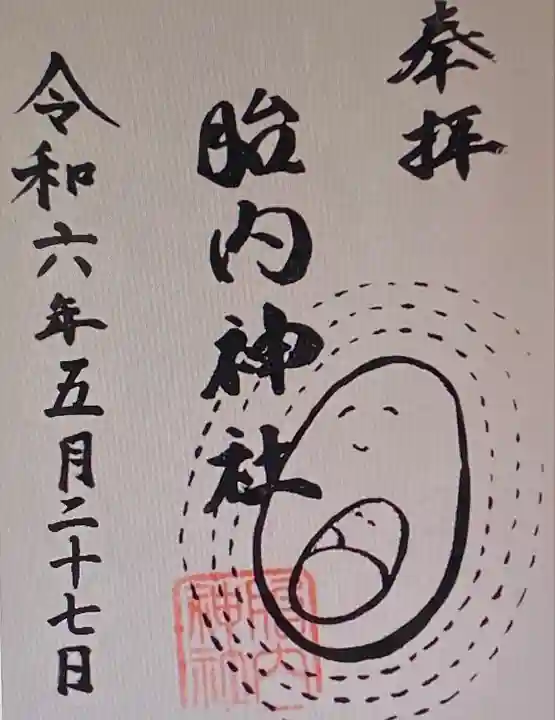 奉拝
胎内神社
令和六年五月二十七日
胎内
神社